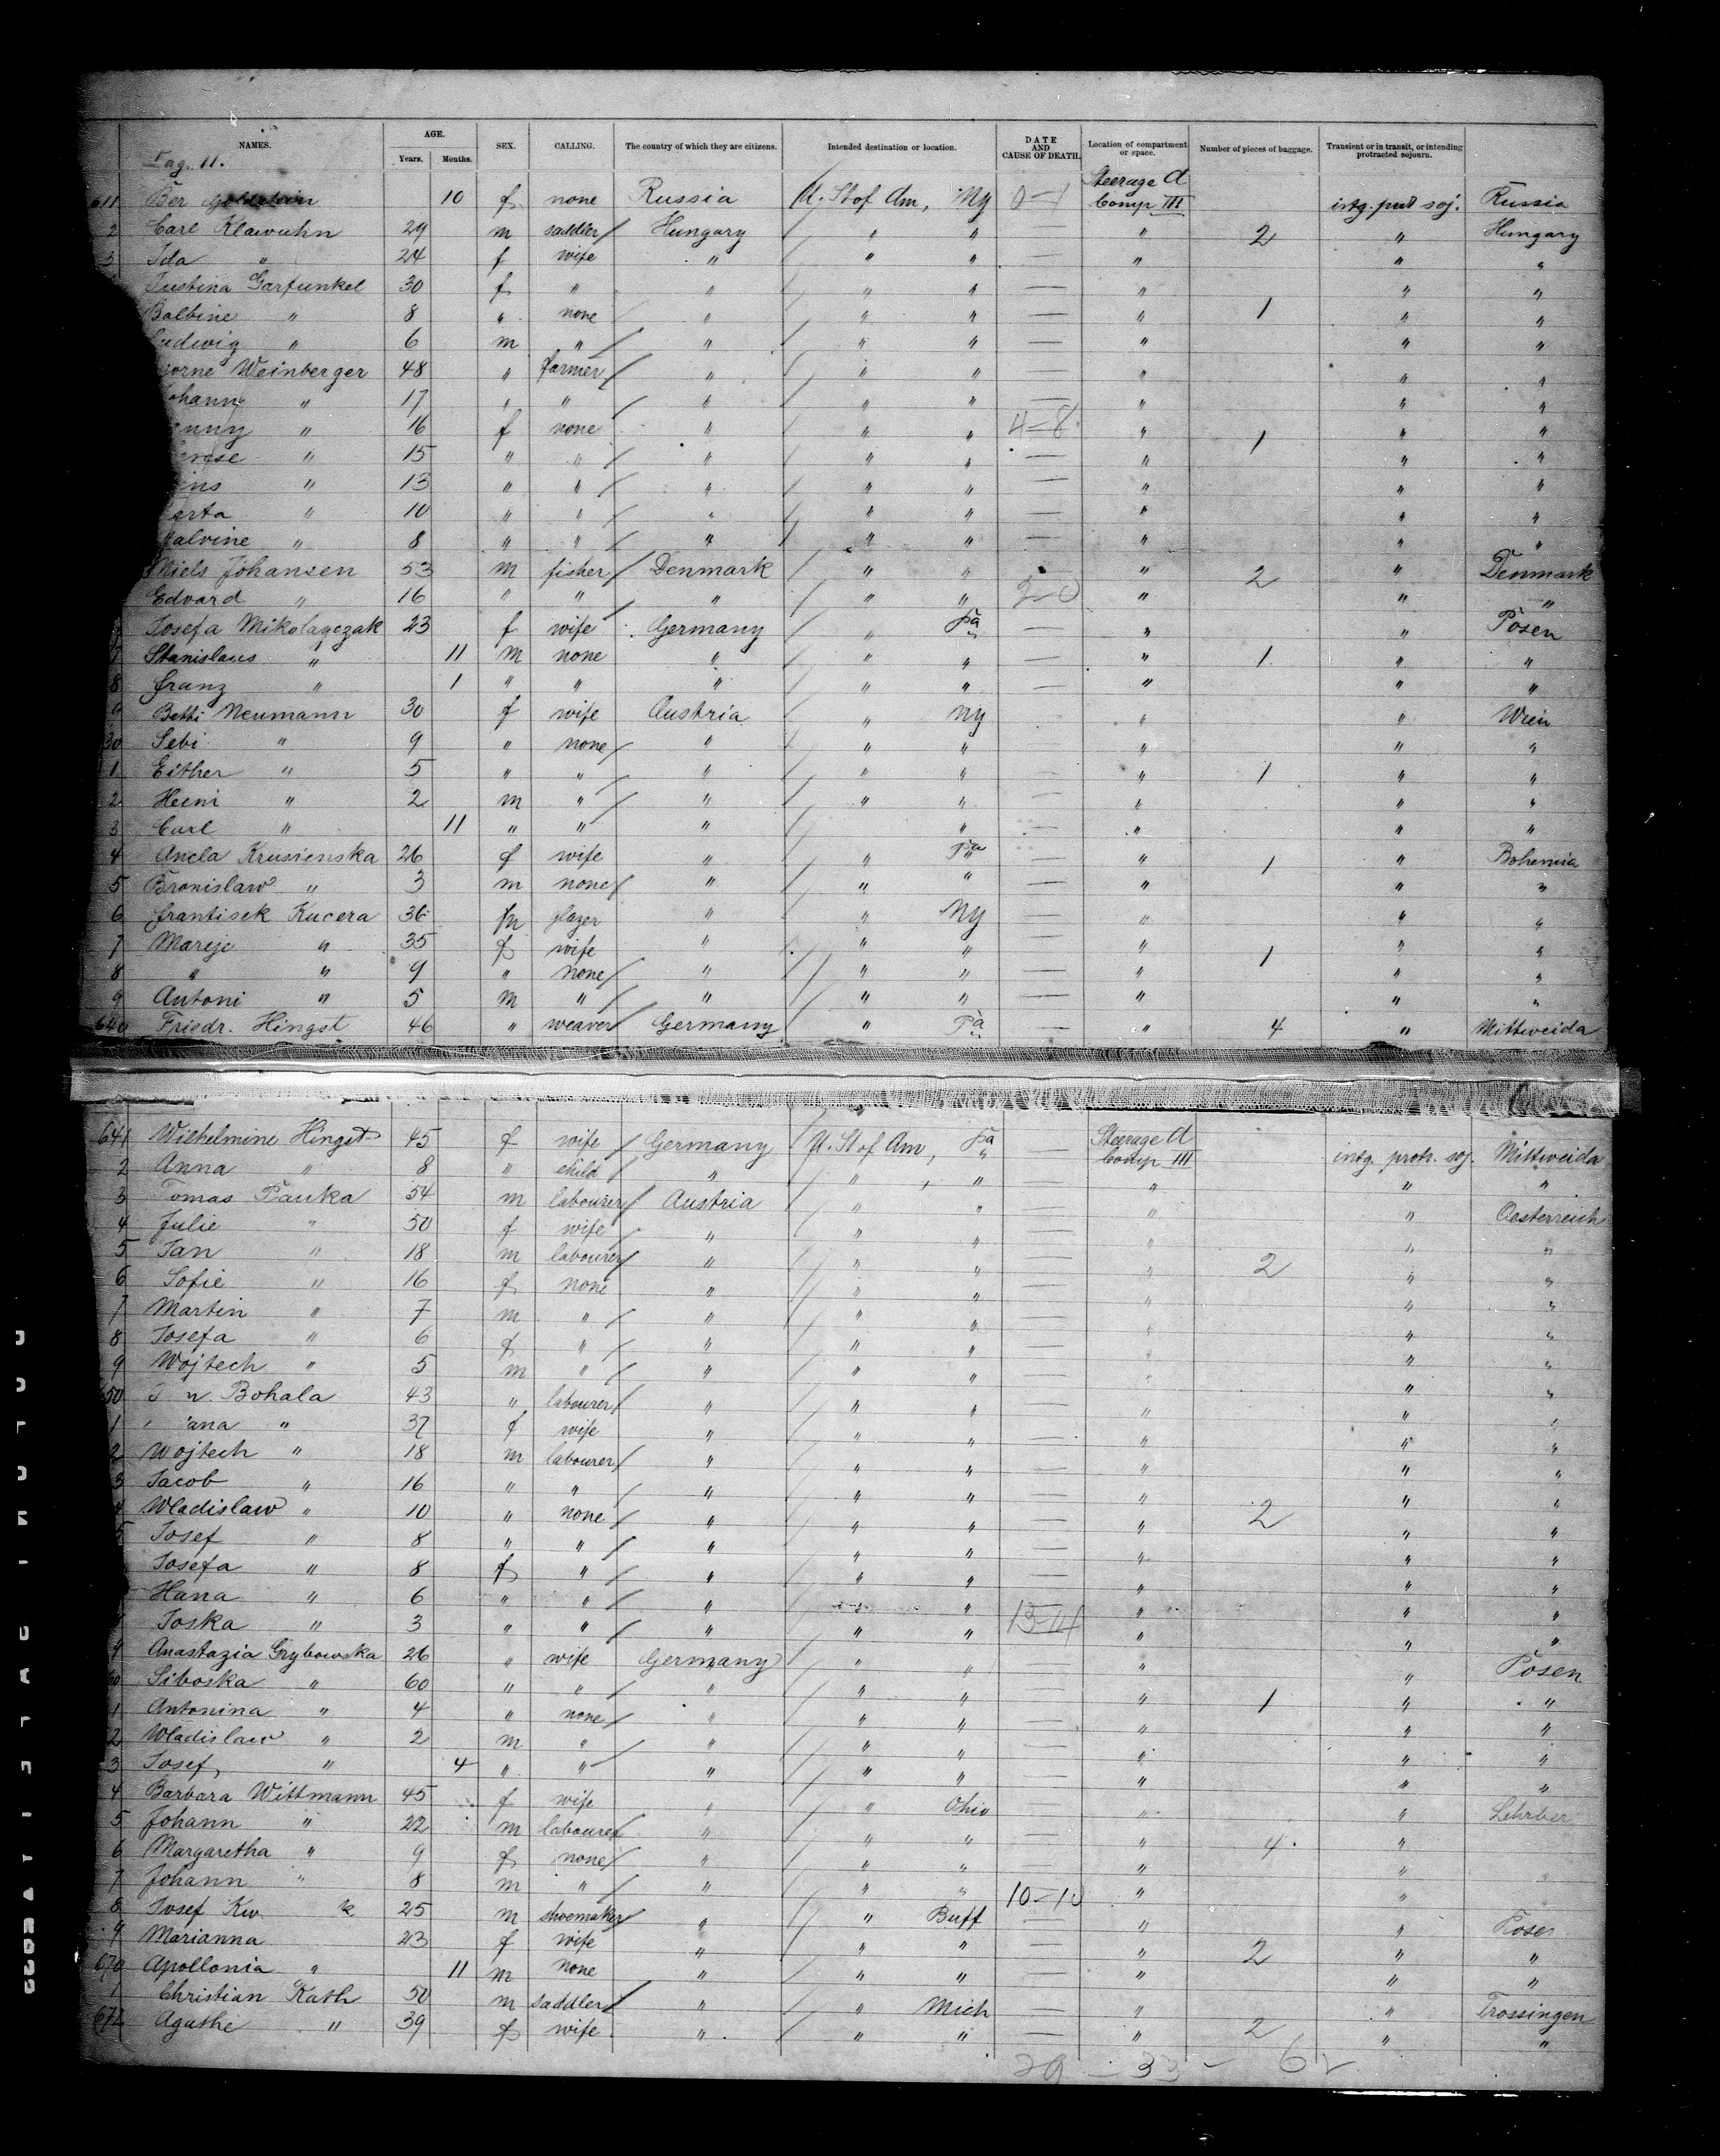 NAMES. AGE. Years. Months. SEX. CALLING. The country of which they are citizens. Intended destination or location. DATE AND CAUSE OF DEATH. Location of compartment or space. Number of pieces of baggage. Transient or in transit, or intending protracted sojourn.
Pag. 11.
611 Ber Goldstein 10 f none Russia U. St of Am, NY 0-1 Steerage A Comp III intg. prot soj. Russia
2 Carl Klawuhn 29 m saddler Hungary " " — " 2 " Hungary
3 Ida " 24 f wife " " " — " " "
Justina Garfunkel 30 f " " " " — " " "
Balbine " 8 " none " " " — " 1 " "
Ludwig " 6 m " " " " — " " "
Weinberger 48 " farmer " " " " " "
Johann " 17 " " " " " — " " "
" 16 f none " " " 4-8 " 1 " "
" 15 " " " " " — " " "
" 13 " " " " " — " " "
" 10 " " " " " — " " "
Malvine " 8 " " " " " — " " "
Niels Johansen 53 m fisher Denmark " " — " 2 " Denmark
Edvard " 16 " " " " " " " "
Josefa Mikolayczak 23 f wife Germany " Pa " " Posen
7 Stanislaus " 11 m none " " " — " 1 " "
8 Franz " 1 " " " " " — " " "
9 Betti Neumann 30 f wife Austria " NY " " Wien
30 Sebi " 9 " none " " " " " "
1 Esther " 5 " " " " " — " 1 " "
2 Heini " 2 m " " " " — " " "
3 Carl " 11 " " " " — " " "
4 Anela Krusienska 26 f wife " " Pa — " 1 " Bohemia
5 Bronislaw " 3 m none " " " — " " "
6 Frantisek Kucera 36 m glazer " " NY " " "
7 Mareje " 35 f wife " " " — " 1 " "
8 " " 9 " none " " " — " " "
9 Antoni " 5 m " " " " — " " "
640 Friedr. Hingst 46 " weaver Germany " Pa — " 4 " Mittweida
641 Wilhelmine Hingst 45 f wife Germany U. St of Am, Pa — Steerage A Comp III intg. prot. soj. Mittweida
2 Anna " 8 " child " " " — " " "
3 Tomas Pauka 54 m labourer Austria " " — " " Oesterreich
4 Julie " 50 f wife " " " — " " "
5 Jan " 18 m labourer " " " — " 2 " "
6 Sofie " 16 f none " " " — " " "
7 Martin " 7 m " " " " — " " "
8 Josefa " 6 f " " " " — " " "
9 Wojtech " 5 m " " " " — " " "
650 Bohala 43 " labourer " " " — " " "
1 " 37 f wife " " " — " " "
2 Wojtech " 18 m labourer " " " — " " "
3 Jacob " 16 " " " " " — " " "
4 Wladislaw " 10 " none " " " — " 2 " "
5 Josef " 8 " " " " " — " " "
Josefa " 8 f " " " " — " " "
Hana " 6 " " " " " — " " "
Joska " 3 " " " " " 13-4 " " "
9 Anastazia Grybowska 26 " wife Germany " " — " " Posen
60 Siboska " 60 " " " " " — " 1 " "
1 Antonina " 4 " none " " " — " " "
2 Wladislaw " 2 m " " " " — " " "
3 Josef " 4 " " " " " — " " "
4 Barbara Wittmann 45 f wife " " Ohio — " "
5 Johann " 22 m labourer " " " — " 4 "
6 Margaretha " 9 f none " " " — " "
7 Johann " 8 m " " " " 10-10 " "
8 Josef 25 m shoemaker " " Buff — " " Posen
9 Marianna 23 f wife " " " — " 2 " "
670 Apollonia " 11 m none " " " — " " "
1 Christian Kath 50 m saddler " " Mich — " " Trossingen
672 Agathe " 39 f wife " " " — " 2 " "
29 - 33 - 62